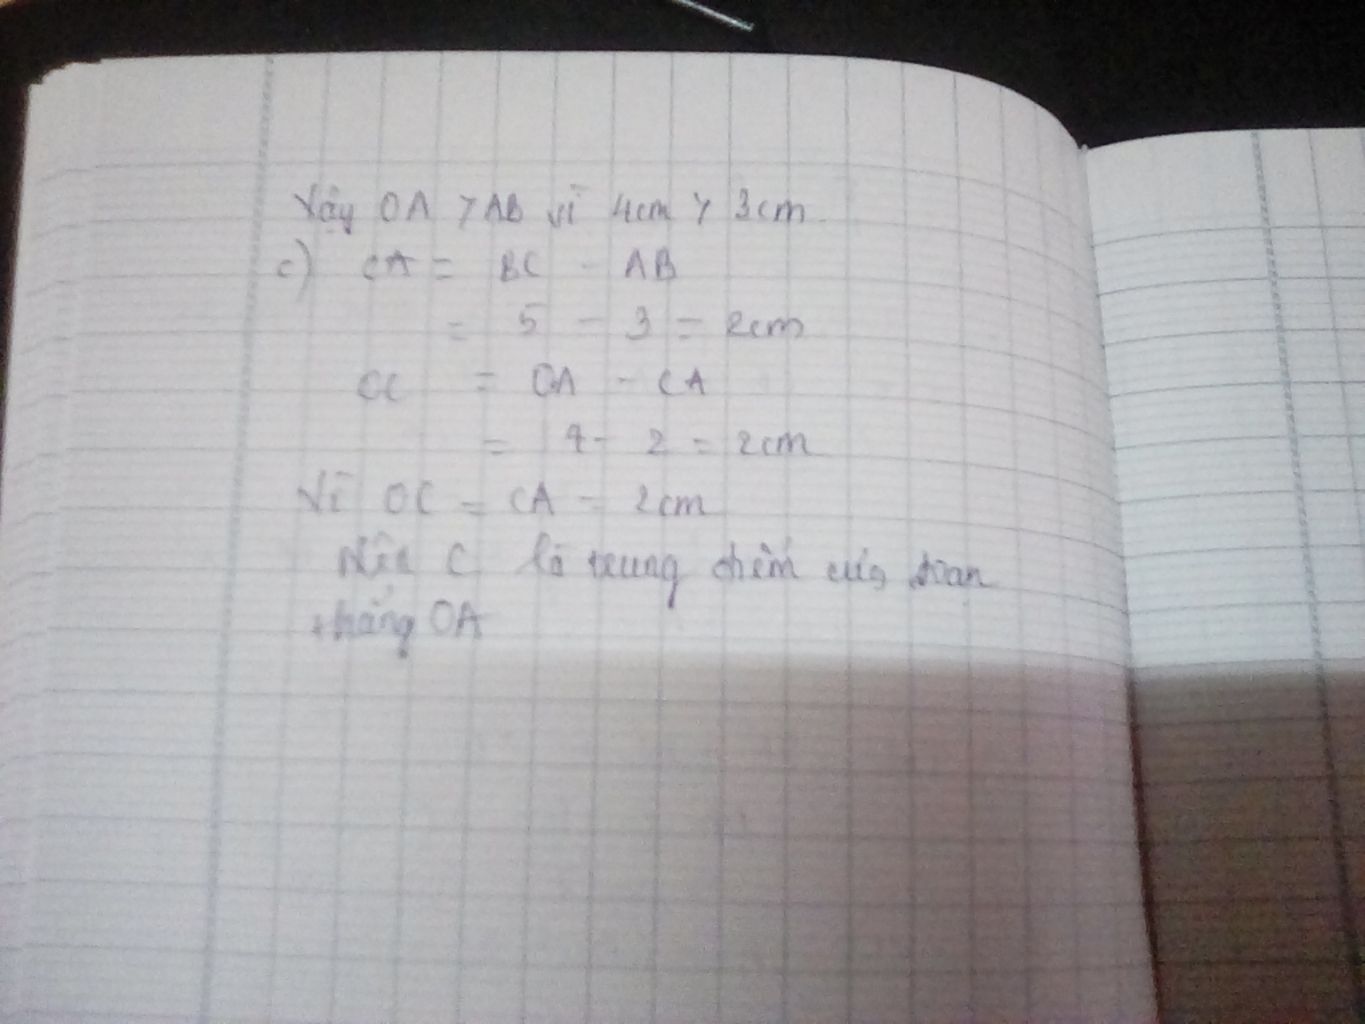 Vậy OA > AB vì 4cm > 3cm
c) CA = BC - AB
= 5 - 3 = 2cm
OC = OA - CA
= 4 - 2 = 2cm
Vì OC = CA = 2cm
Nên C là trung điểm của đoạn
thẳng OA